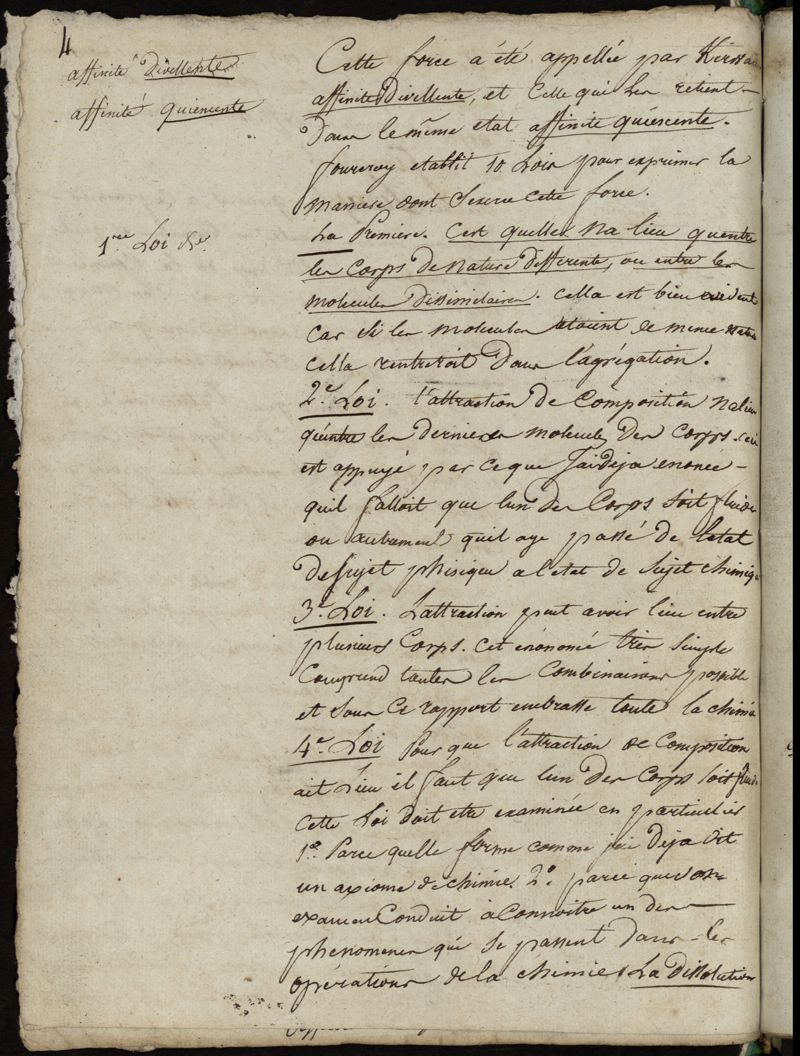 4
affinité Divellente
affinité quiescente
1re Loi &c.
Cette force a été appellée par Kirwan
affinité Divellente, et Celle qui les retient
Dans le même etat affinité quiescente.
fourcroy etablit 10 Loix pour exprimer la
maniere dont S'exerce Cette force.
La Premiere. C'est quelle n'a lieu qu'entre
les Corps De Nature Differente, ou entre les
molecules Dissimilaires. cella est bien evident
car Si les molecules etoient de meme nature
cella rentreroit Dans l'agrégation.
2e Loi. l'attraction De Composition na lieu
qu'entre les dernieres molecules Des Corps. ceci
est appuyé par ce que J'ai deja enoncé
quil falloit que lun Des Corps Soit fluide
ou autrement quil aye passé de l'etat
De Sujet phisique a l'etat de Sujet chimique
3e Loi. L'attraction peut avoir lieu entre
plusieurs Corps. Cet énoncé très simple
Comprend toutes les Combinaisons possible
et Sous Ce rapport embrasse toute la chimie
4e Loi Pour que l'attraction de Composition
ait Lieu il faut que lun Des Corps Soit fluide
Cette Loi doit etre examinée en particulier
1o. Parce quelle forme comme j'ai Deja Dit
un axiome de chimie. 2o. parce que son
examen Conduit à Connoitre un des
phenomenes qui Se passent Dans les
opérations de la chimie La Dissolution